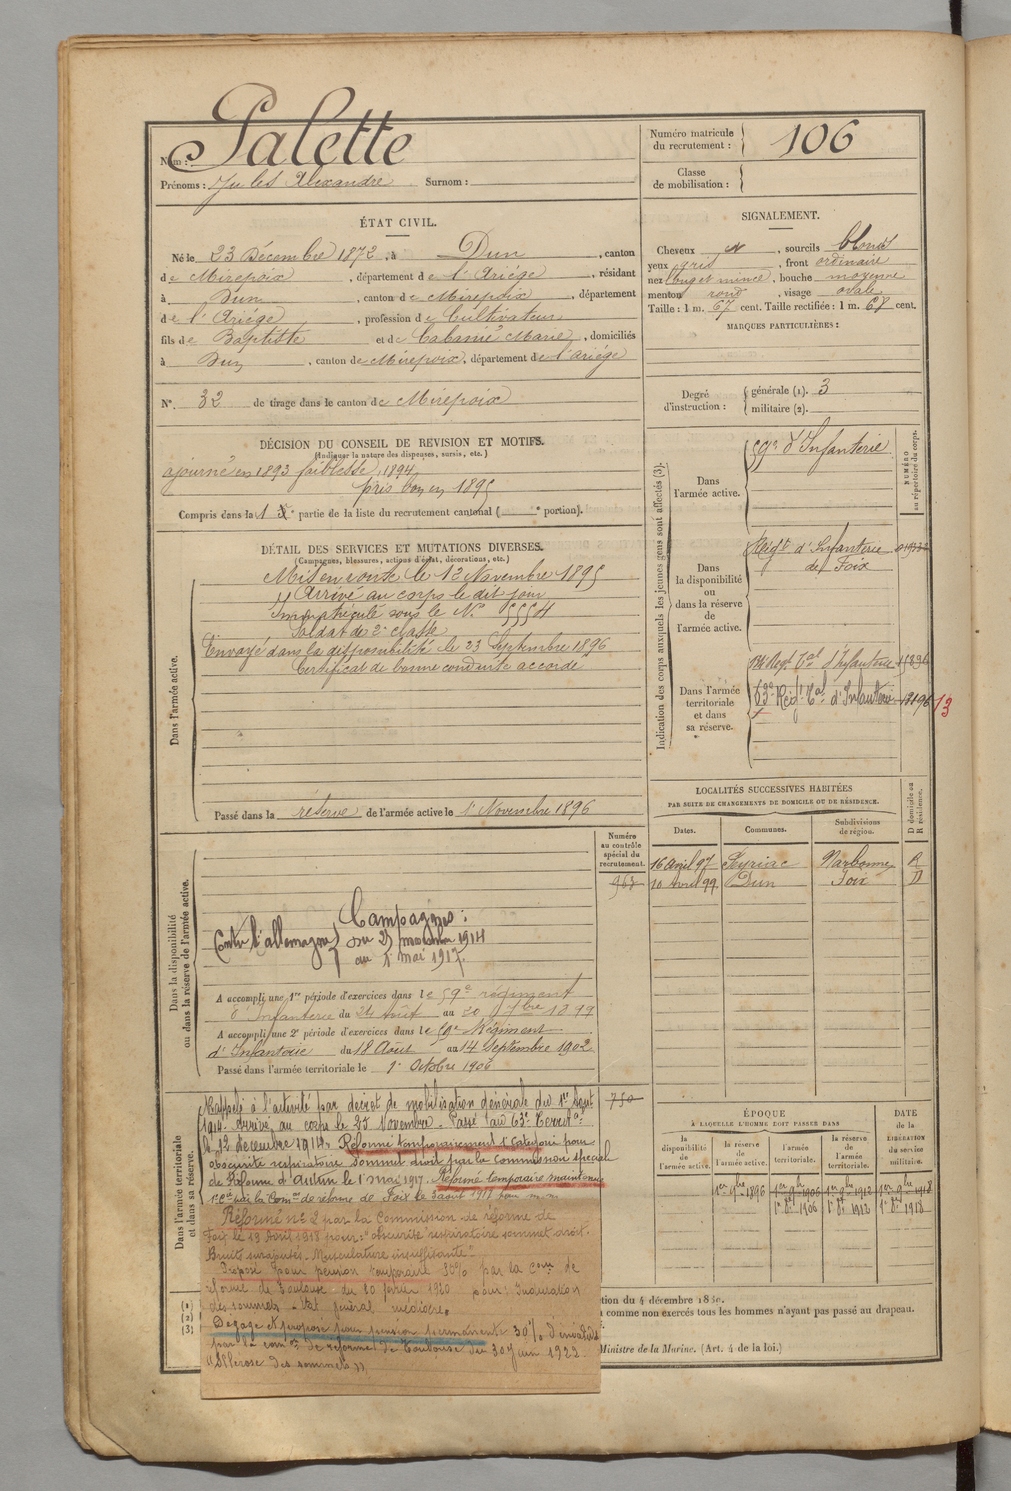 Nom : Palette
Prénoms : Jules Alexandre Surnom :
Numéro matricule du recrutement : 106
Classe de mobilisation :
ÉTAT CIVIL.
Né le 23 Décembre 1872, à Dun, canton
de Mirepoix, département de l'Ariége, résidant
à Dun, canton de Mirepoix, département
de l'Ariége, profession de Cultivateur
fils de Baptiste et de Cabanié Marie, domiciliés
à Dun, canton de Mirepoix, département de l'Ariége
N° 32 de tirage dans le canton de Mirepoix
SIGNALEMENT.
Cheveux et, sourcils blonds
yeux gris, front ordinaire
nez long et mince, bouche moyenne
menton rond, visage ovale
Taille : 1 m. 67 cent. Taille rectifiée : 1 m. 68 cent.
MARQUES PARTICULIÈRES :
Degré d'instruction : générale (1). 3
militaire (2).
DÉCISION DU CONSEIL DE REVISION ET MOTIFS.
(Indiquer la nature des dispenses, sursis, etc.)
ajourné en 1893 faiblesse, 1894,
pris bon en 1895
Compris dans la 1e partie de la liste du recrutement cantonal ( e portion).
DÉTAIL DES SERVICES ET MUTATIONS DIVERSES.
(Campagnes, blessures, actions d'éclat, décorations, etc.)
Dans l'armée active.
Mis en route le 12 Novembre 1895
Arrivé au corps le dit jour
Immatriculé sous le N° 5554
Soldat de 2e classe
Envoyé dans la disponibilité le 23 Septembre 1896
Certificat de bonne conduite accordé
Passé dans la réserve de l'armée active le 1er Novembre 1896
Indication des corps auxquels les jeunes gens sont affectés (3).
NUMÉRO au répertoire du corps.
Dans l'armée active.
59e d'Infanterie
Dans la disponibilité ou dans la réserve de l'armée active.
Régt d'Infanterie
de Foix
Dans l'armée territoriale et dans sa réserve.
Régt Tal d'Infanterie
63e Régt Tal d'Infanterie
13
LOCALITÉS SUCCESSIVES HABITÉES
PAR SUITE DE CHANGEMENTS DE DOMICILE OU DE RÉSIDENCE.
Dates. Communes. Subdivisions de région. D domicile ou R résidence.
16 Avril 97 Peyriac Narbonne R
10 Avril 99 Dun Foix D
Dans la disponibilité ou dans la réserve de l'armée active.
Numéro au contrôle spécial du recrutement.
963
Campagnes :
Contre l'allemagne du 25 novembre 1914
au 1er mai 1917.
A accompli une 1re période d'exercices dans le 59e régiment
d'Infanterie du 24 Août au 20 7bre 1899
A accompli une 2e période d'exercices dans le 59e Régiment
d'Infanterie du 18 Août au 14 Septembre 1902
Passé dans l'armée territoriale le 1er Octobre 1906
Dans l'armée territoriale et dans sa réserve.
750
Rappelé à l'activité par décret de mobilisation générale du 1er Août
1914. Arrivé au corps le 25 Novembre. Passé au 63e Territal
le 12 décembre 1914. Réformé temporairement 1e catégorie pour
obscurité respiratoire sommet droit par la Commission spéciale
de Réforme d'Autun le 1 mai 1917. Réformé temporaire maintenue
1e Cat par la Comon de réforme de Foix le 3 août 1917 pour m.m.
Réformé n° 2 par la Commission de réforme de
Foix le 19 Avril 1918 pour : "obscurité respiratoire sommet droit.
Bruits surajoutés. Musculature insuffisante"
Proposé pour pension temporaire 30% par la Com. de
réforme de Toulouse du 10 février 1920 pour : Induration
des sommets. état général médiocre.
Dégagé et proposé pour pension permanente 30% d'invalidité
par la com on de réforme de Toulouse du 30 Juin 1922.
"Sclérose des sommets"
ÉPOQUE
À LAQUELLE L'HOMME DOIT PASSER DANS
la disponibilité de l'armée active. la réserve de l'armée active. l'armée territoriale. la réserve de l'armée territoriale.
DATE de la LIBÉRATION du service militaire.
1er 9bre 1896 1er 9bre 1906 1er 9bre 1912 1er 9bre 1918
1er 8bre 1906 1er 8bre 1912 1er 8bre 1918
(1)
(2)
(3)
comme non exercés tous les hommes n'ayant pas passé au drapeau.
Ministre de la Marine. (Art. 4 de la loi.)